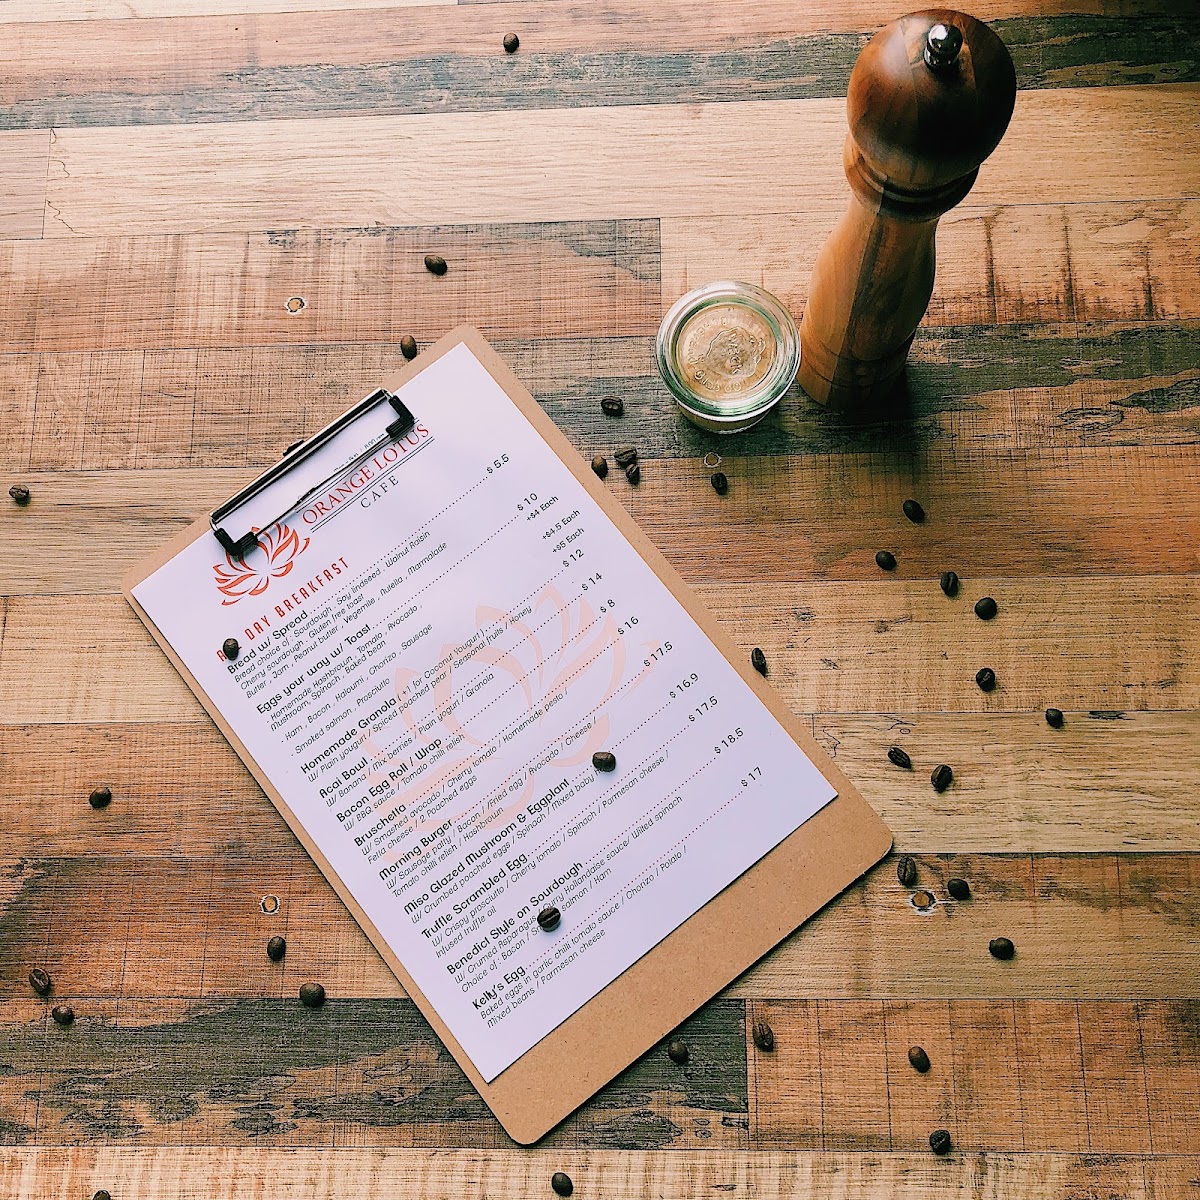 ORANGE LOTUS
CAFE
DAY BREAKFAST
Bread w/ Spread $ 5.5
Bread choice of : Sourdough , Soy linseed , Walnut Raisin
Cherry sourdough , Gluten free toast
Butter , Jam , Peanut butter , Vegemite , Nutella , Marmalade
Eggs your way w/ Toast $ 10
Homemade Hashbrown , Tomato , Avocado , +$4 Each
Mushroom, Spinach , Baked bean
Ham , Bacon , Haloumi , Chorizo , Sausage +$4.5 Each
Smoked salmon , Prosciutto +$5 Each
Homemade Granola (+1 for Coconut Yougurt ) $ 12
W/ Plain yougurt / Spiced poached pear/ Seasonal fruits/ Honey
Acai Bowl $ 14
W/ Banana / Mix berries / Plain yogurt / Granola
Bacon Egg Roll / Wrap $ 8
W/ BBQ sauce / Tomato chilli relish
Bruschetta $ 16
W/ Smashed avocado / Cherry tomato / Homemade pesto /
Fetta cheese / 2 Poached eggs
Morning Burger $ 17.5
W/ Sausage patty / Bacon / Fried egg / Avocado / Cheese /
Tomato chilli relish / Hashbrown
Miso Glazed Mushroom & Eggplant $ 16.9
W/ Crumbed poached eggs / Spinach / Mixed baby
Truffle Scrambled Egg $ 17.5
W/ Crispy prosciutto / Cherry tomato / Spinach / Parmesan cheese /
Infused truffle oil
Benedict Style on Sourdough $ 18.5
W/ Crumed Asparagus Curry Hollandaise sauce/ Wilted spinach
Choice of : Bacon / salmon / Ham
Kelly's Egg $ 17
Baked eggs in garlic chilli tomato sauce / Chorizo / Potato /
Mixed beans / Parmesan cheese